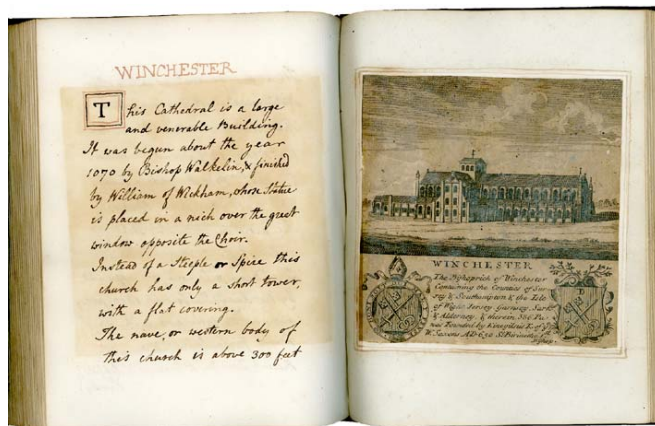 WINCHESTER
This Cathedral is a large
and venerable Building.
It was begun about the year
1070 by Bishop Walkelin, & finished
by William of Wickham, whose Statue
is placed in a nich over the great
window opposite the Choir.
Instead of a Steeple or Spire this
church has only a short tower,
with a flat covering.
The nave, or western body of
this church is above 300 feet
WINCHESTER
The Bishoprick of Winchester
Containing the Counties of Sur
rey & Southampton & the Isle
of Wight Jersey Guernsey Sark
& Alderney & therein 362 Par.
was Founded by Kinegilsus K. of ye
W. Saxons AD 636 St Birinus